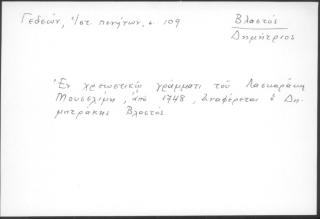 Γεδεών, Πστ. πενήτων, σ. 109
Βλαστός
Δημήτριος
Ἐν χρεωστικῷ γράμματι τοῦ Λασκαράκη
Μουσελίμη, ἀπό 1748, ἀναφέρεται ὁ Δη-
μητράκης Βλαστός.